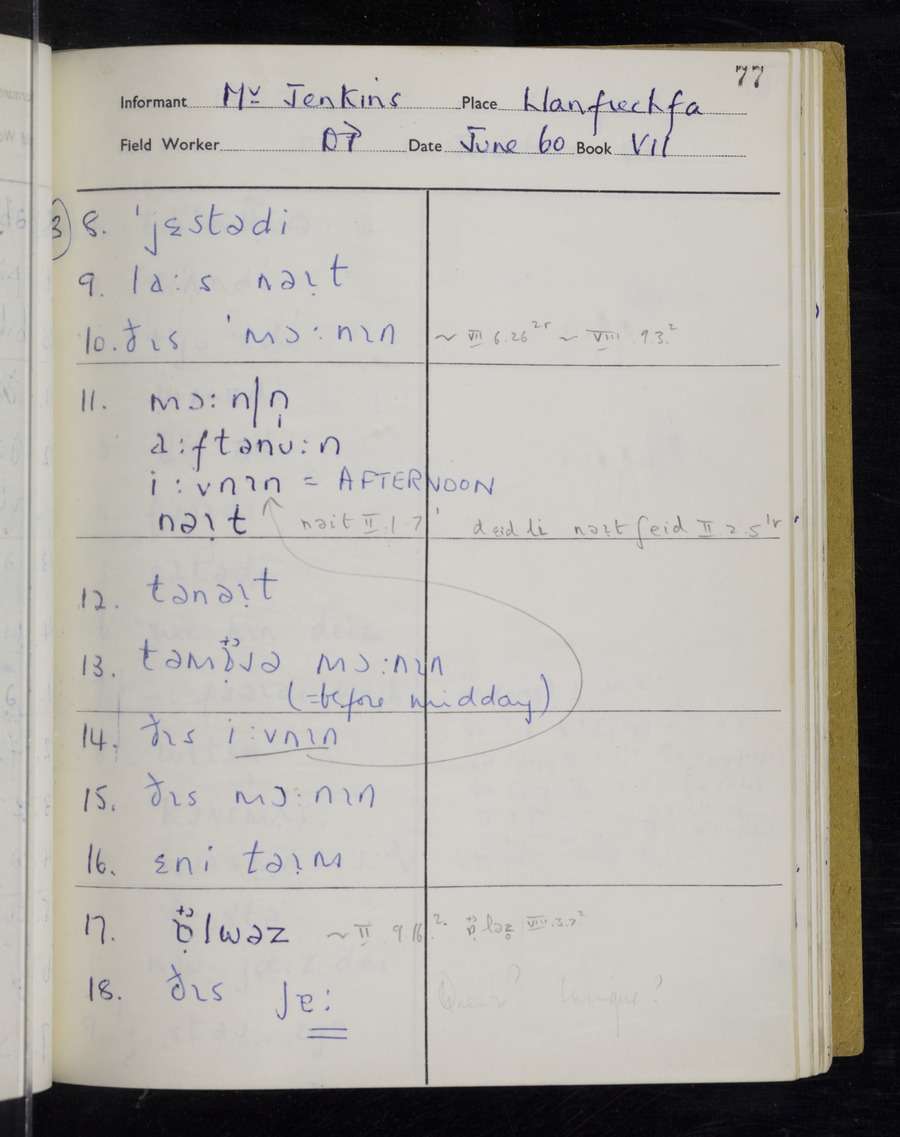 77
Informant Mr Jenkins Place Llanfrechfa
Field Worker DP Date June 60 Book VII
3 8. ˈjɛstədi
9. la:s nəɪ̣t
10. ðɪs ˈmɔ:nɪn ~ VII 6.26²ʳ ~ VIII 9.3.²
11. mɔ:n|n̩
a:ftənu:n
i:vnɪn = AFTERNOON
nəɪ̣t nəit II.1.7 nəɪ̣t feid II 2.5
12. tənəɪ̣t
13. mɔ:nɪn
(=before midday)
14. ðɪs i:vnɪn
15. ðɪs mɔ:nɪn
16. ɛni təɪ̣m
17. ɒ̣̈lwəz ~ II 9 16.² ɒ̣̈ləz̥ VIII.3.7²
18. ðɪs jɐ:
Queer? Unique?